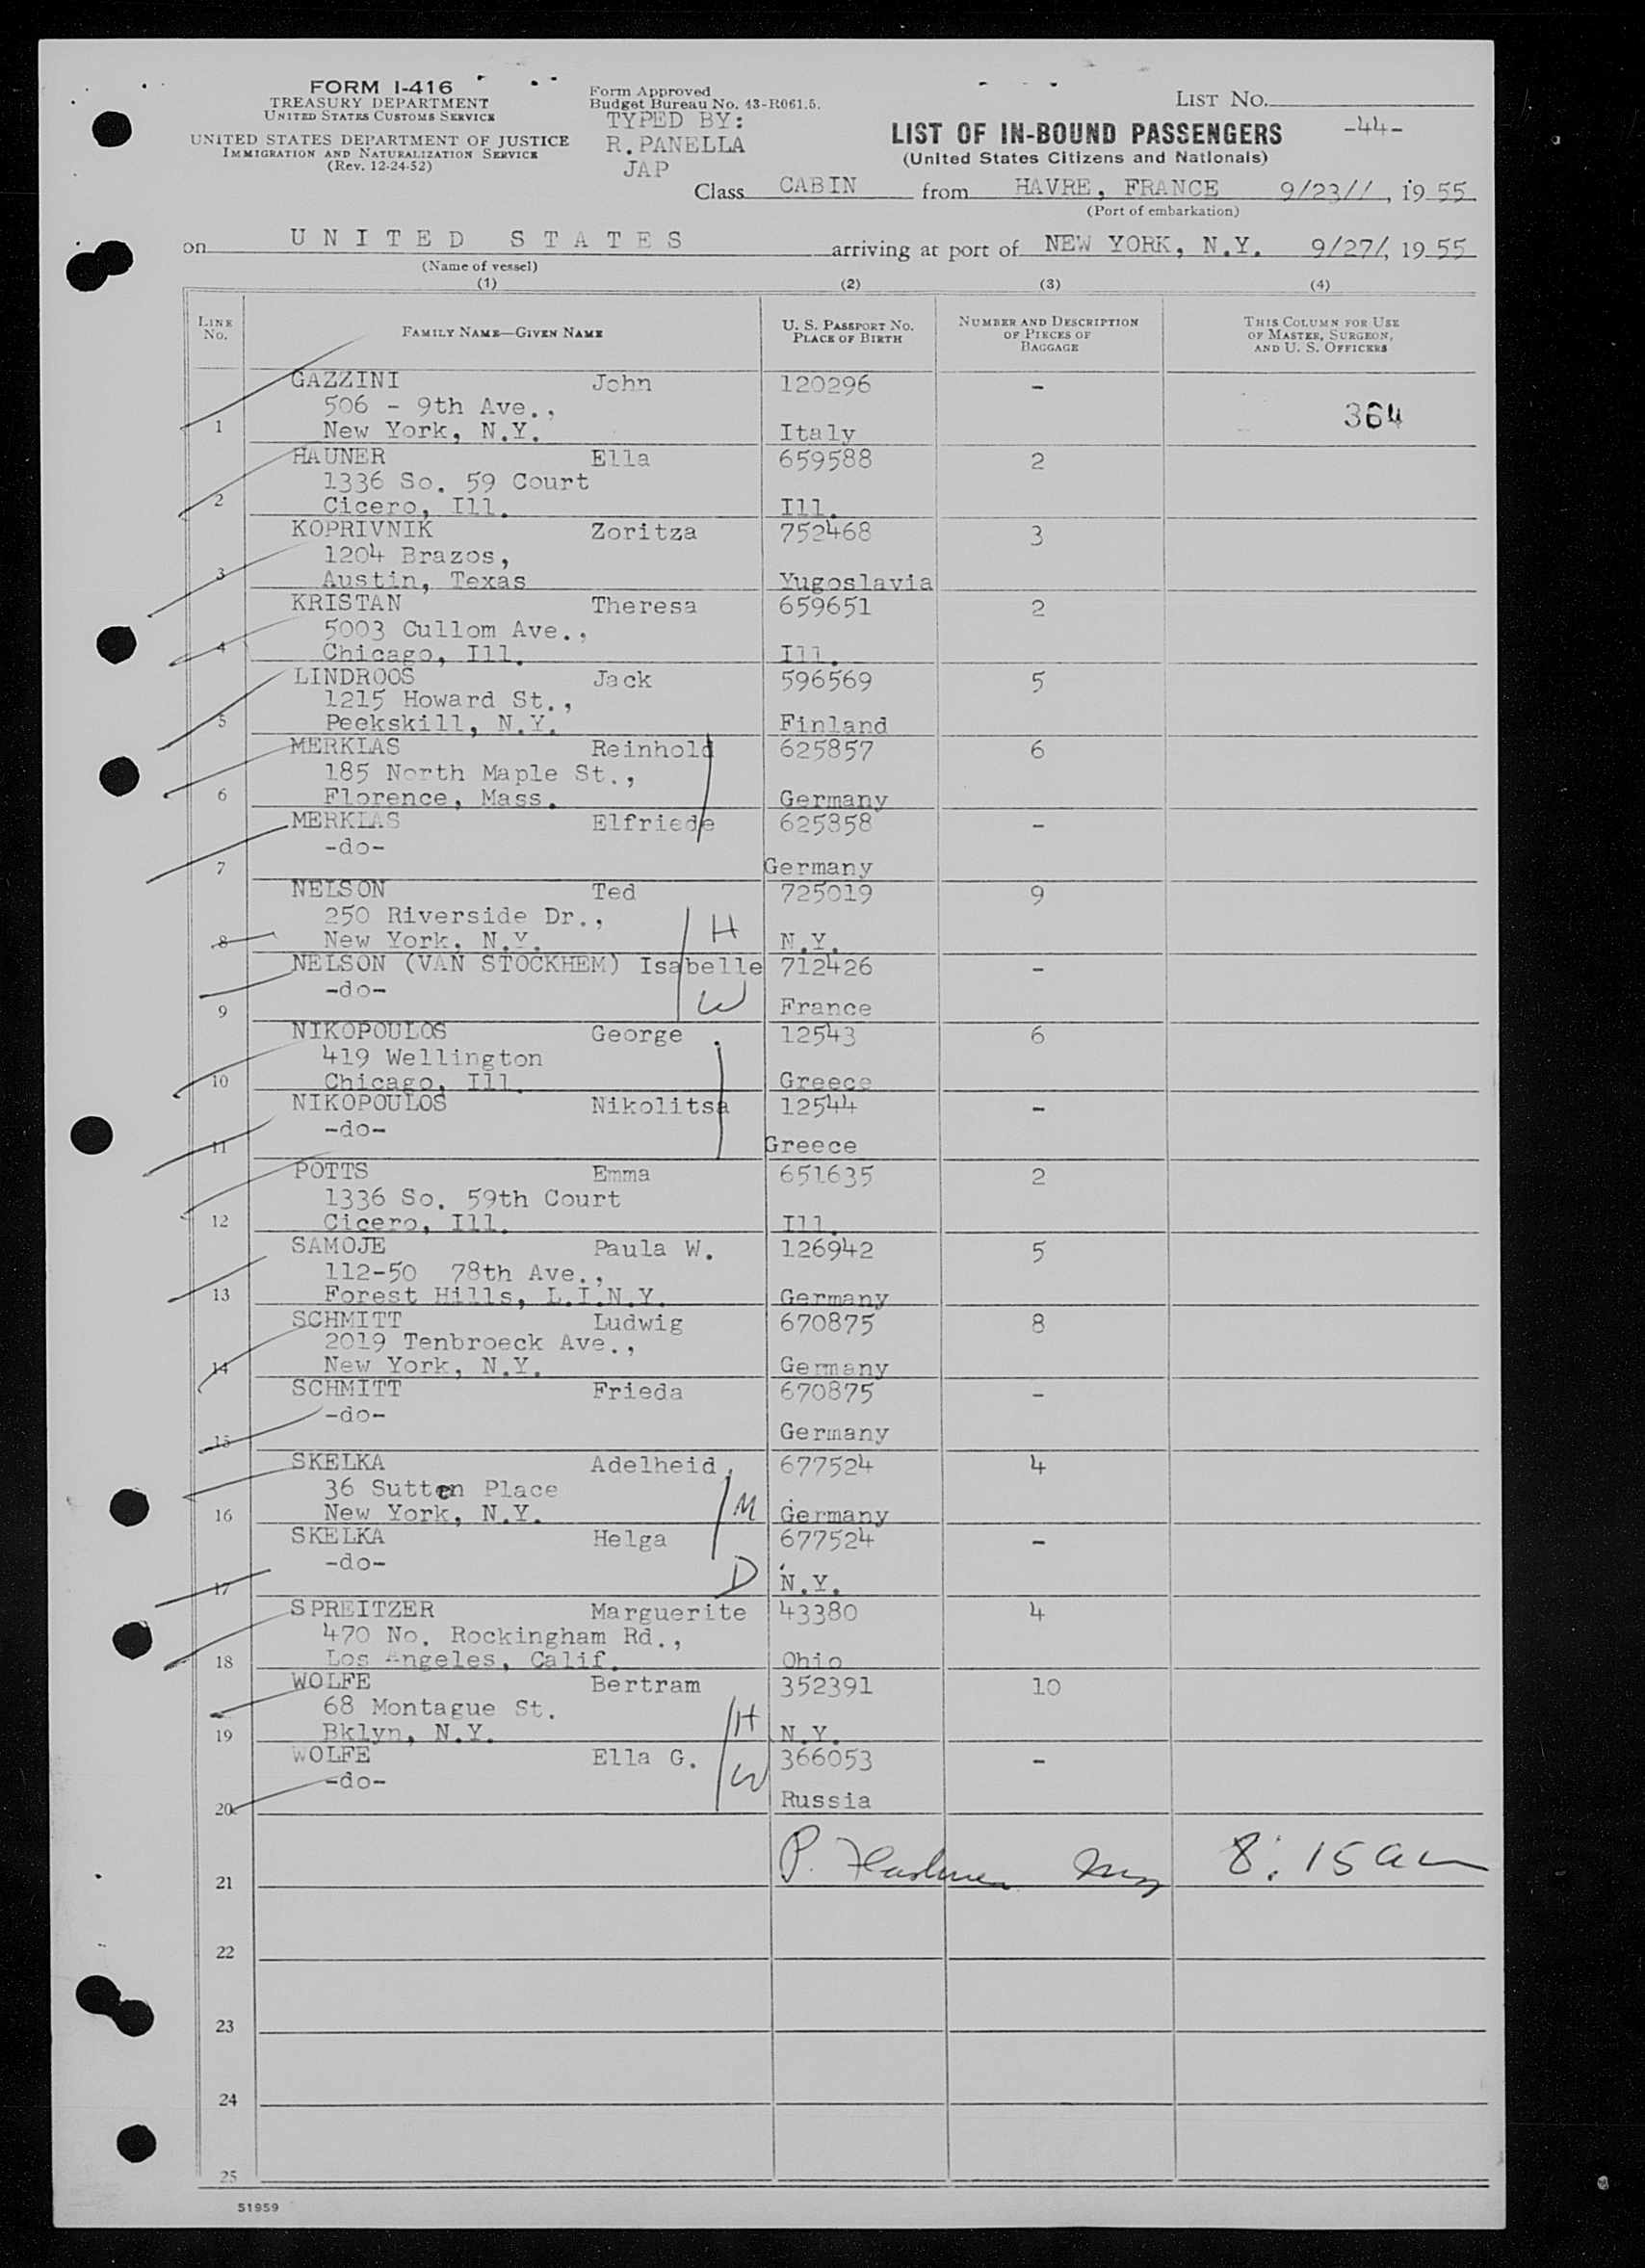 FORM I-416
TREASURY DEPARTMENT
UNITED STATES CUSTOMS SERVICE
UNITED STATES DEPARTMENT OF JUSTICE
IMMIGRATION AND NATURALIZATION SERVICE
(Rev. 12-24-52)
Form Approved
Budget Bureau No. 43-R061.5.
TYPED BY:
R.PANELLA
JAP
LIST NO.
-44-
LIST OF IN-BOUND PASSENGERS
(United States Citizens and Nationals)
Class CABIN from HAVRE, FRANCE 9/23//, 19 55
(Port of embarkation)
on UNITED STATES arriving at port of NEW YORK, N.Y. 9/27/, 19 55
(Name of vessel)
(1) (2) (3) (4)
LINE No. FAMILY NAME—GIVEN NAME U. S. PASSPORT NO. PLACE OF BIRTH NUMBER AND DESCRIPTION OF PIECES OF BAGGAGE THIS COLUMN FOR USE OF MASTER, SURGEON, AND U. S. OFFICERS
GAZZINI John 120296 -
506 - 9th Ave., 364
1 New York, N.Y. Italy
HAUNER Ella 659588 2
1336 So. 59 Court
2 Cicero, Ill. Ill.
KOPRIVNIK Zoritza 752468 3
1204 Brazos,
3 Austin, Texas Yugoslavia
KRISTAN Theresa 659651 2
5003 Cullom Ave.,
4 Chicago, Ill. Ill.
LINDROOS Jack 596569 5
1215 Howard St.,
5 Peekskill, N.Y. Finland
MERKIAS Reinhold 625857 6
185 North Maple St.,
6 Florence, Mass. Germany
MERKIAS Elfriede 625858 -
-do-
7 Germany
NELSON Ted 725019 9
250 Riverside Dr., H
8 New York, N.Y. N.Y.
NELSON (VAN STOCKHEM) Isabelle 712426 -
-do- W
9 France
NIKOPOULOS George 12543 6
419 Wellington
10 Chicago, Ill. Greece
NIKOPOULOS Nikolitsa 12544 -
-do-
11 Greece
POTTS Emma 651635 2
1336 So. 59th Court
12 Cicero, Ill. Ill.
SAMOJE Paula W. 126942 5
112-50 78th Ave.,
13 Forest Hills, L.I.N.Y. Germany
SCHMITT Ludwig 670875 8
2019 Tenbroeck Ave.,
14 New York, N.Y. Germany
SCHMITT Frieda 670875 -
-do-
15 Germany
SKELKA Adelheid 677524 4
36 Sutton Place M
16 New York, N.Y. Germany
SKELKA Helga 677524 -
-do- D
17 N.Y.
SPREITZER Marguerite 43380 4
470 No. Rockingham Rd.,
18 Los Angeles, Calif. Ohio
WOLFE Bertram 352391 10
68 Montague St. H
19 Bklyn, N.Y. N.Y.
WOLFE Ella G. 366053 -
-do- W
20 Russia
P. 8:15 am
21
22
23
24
25
51959